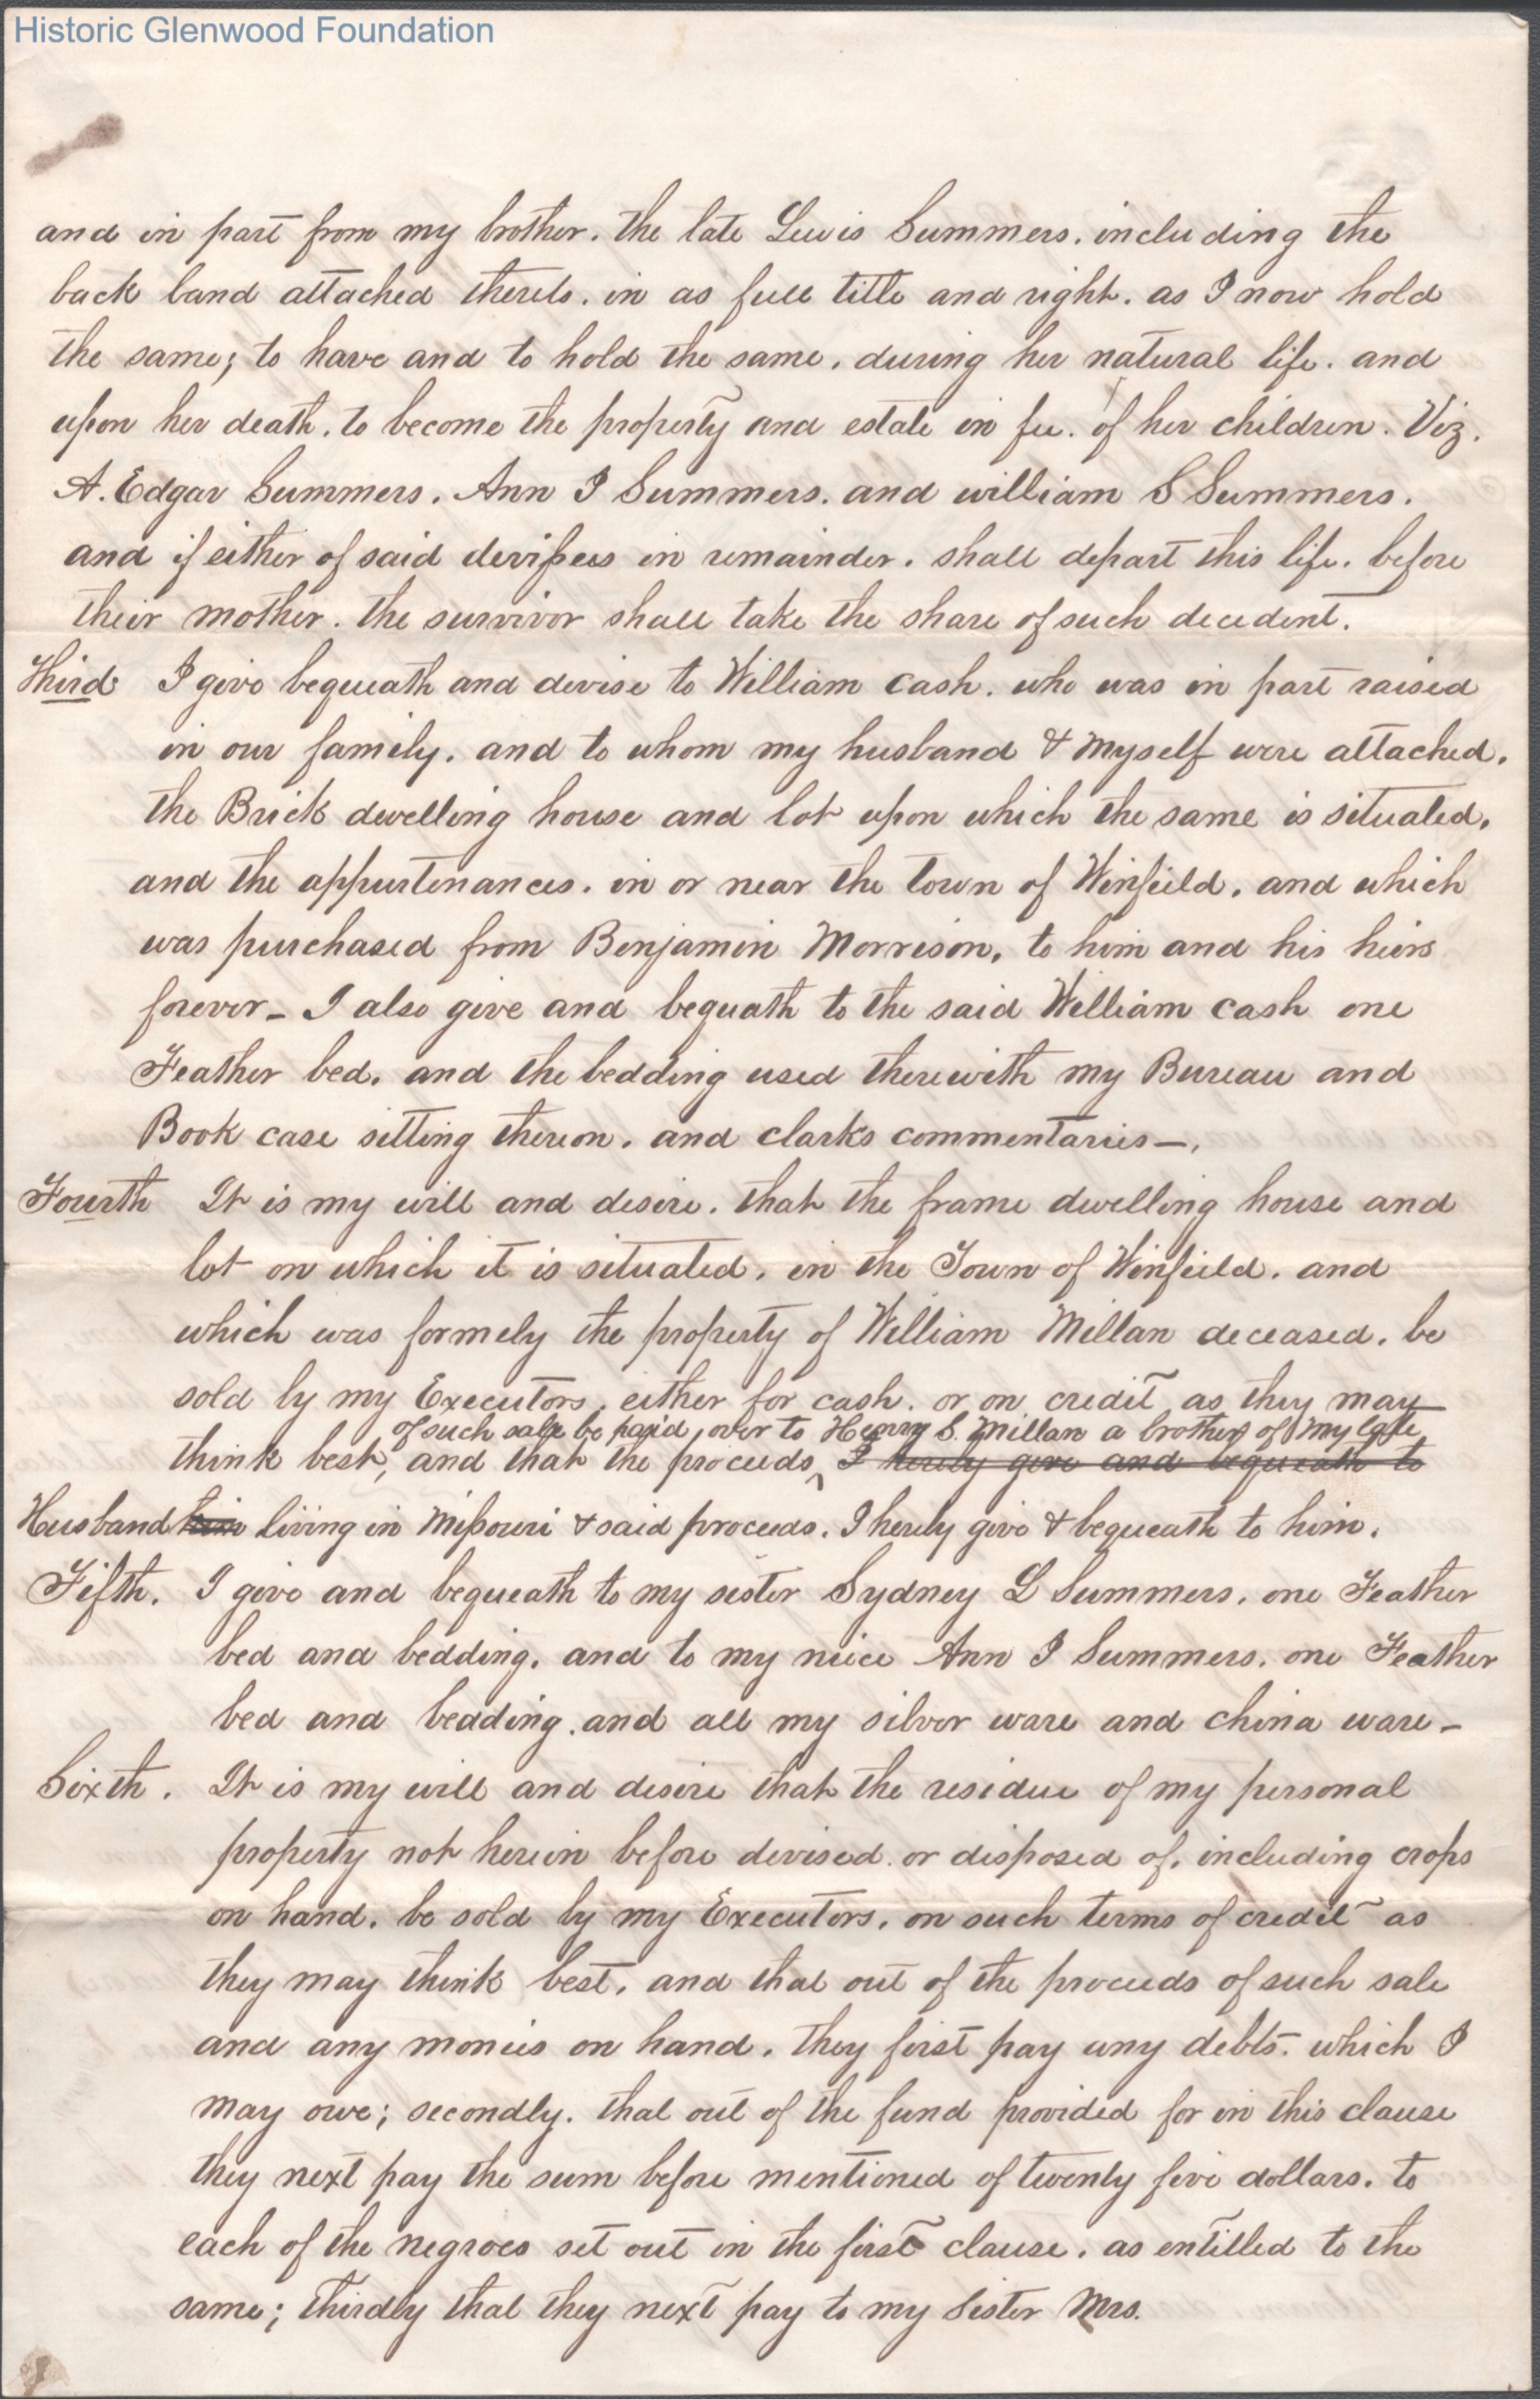 Historic Glenwood Foundation
and in part from my brother. the late Lewis Summers. including the
back land attached thereto. in as full title and right. as I now hold
the same; to have and to hold the same. during her natural life. and
upon her death. to become the property and estate in fee. of her children. Viz.
A. Edgar Summers. Ann I Summers. and william S Summers.
and if either of said devisees in remainder. shall depart this life. before
their mother. the survivor shall take the share of such decedent.
Third I give bequeath and devise to William Cash. who was in part raised
in our family. and to whom my husband & myself were attached.
the Brick dwelling house and lot upon which the same is situated.
and the appurtenances. in or near the town of Winfield. and which
was purchased from Benjamin Morrison. to him and his heirs
forever - I also give and bequath to the said William Cash one
Feather bed. and the bedding used therewith my Bureau and
Book case sitting thereon. and clarks commentaries -.
Fourth It is my will and desire. that the frame dwelling house and
lot on which it is situated. in the Town of Winfield. and
which was formely the property of William Millan deceased. be
sold by my Executors. either for cash. or on credit as they may
of such sale be paid over to Henry S. Millan a brother of my late
think best, and that the proceeds ^ I hereby give and bequeath to
Husband him living in Missouri & said proceeds. I hereby give & bequeath to him.
Fifth. I give and bequeath to my sister Sydney L Summers. one Feather
bed and bedding. and to my niece Ann I Summers. one Feather
bed and bedding. and all my silver ware and china ware -
Sixth. It is my will and desire that the residue of my personal
property not herein before devised. or disposed of. including crops
on hand. be sold by my Executors. on such terms of credit as
they may think best. and that out of the proceeds of such sale
and any monies on hand. they first pay any debts. which I
may owe; secondly. that out of the fund provided for in this clause
they next pay the sum before mentioned of twenty five dollars. to
each of the negroes set out in the first clause. as entitled to the
same; thirdly that they next pay to my Sister Mrs.